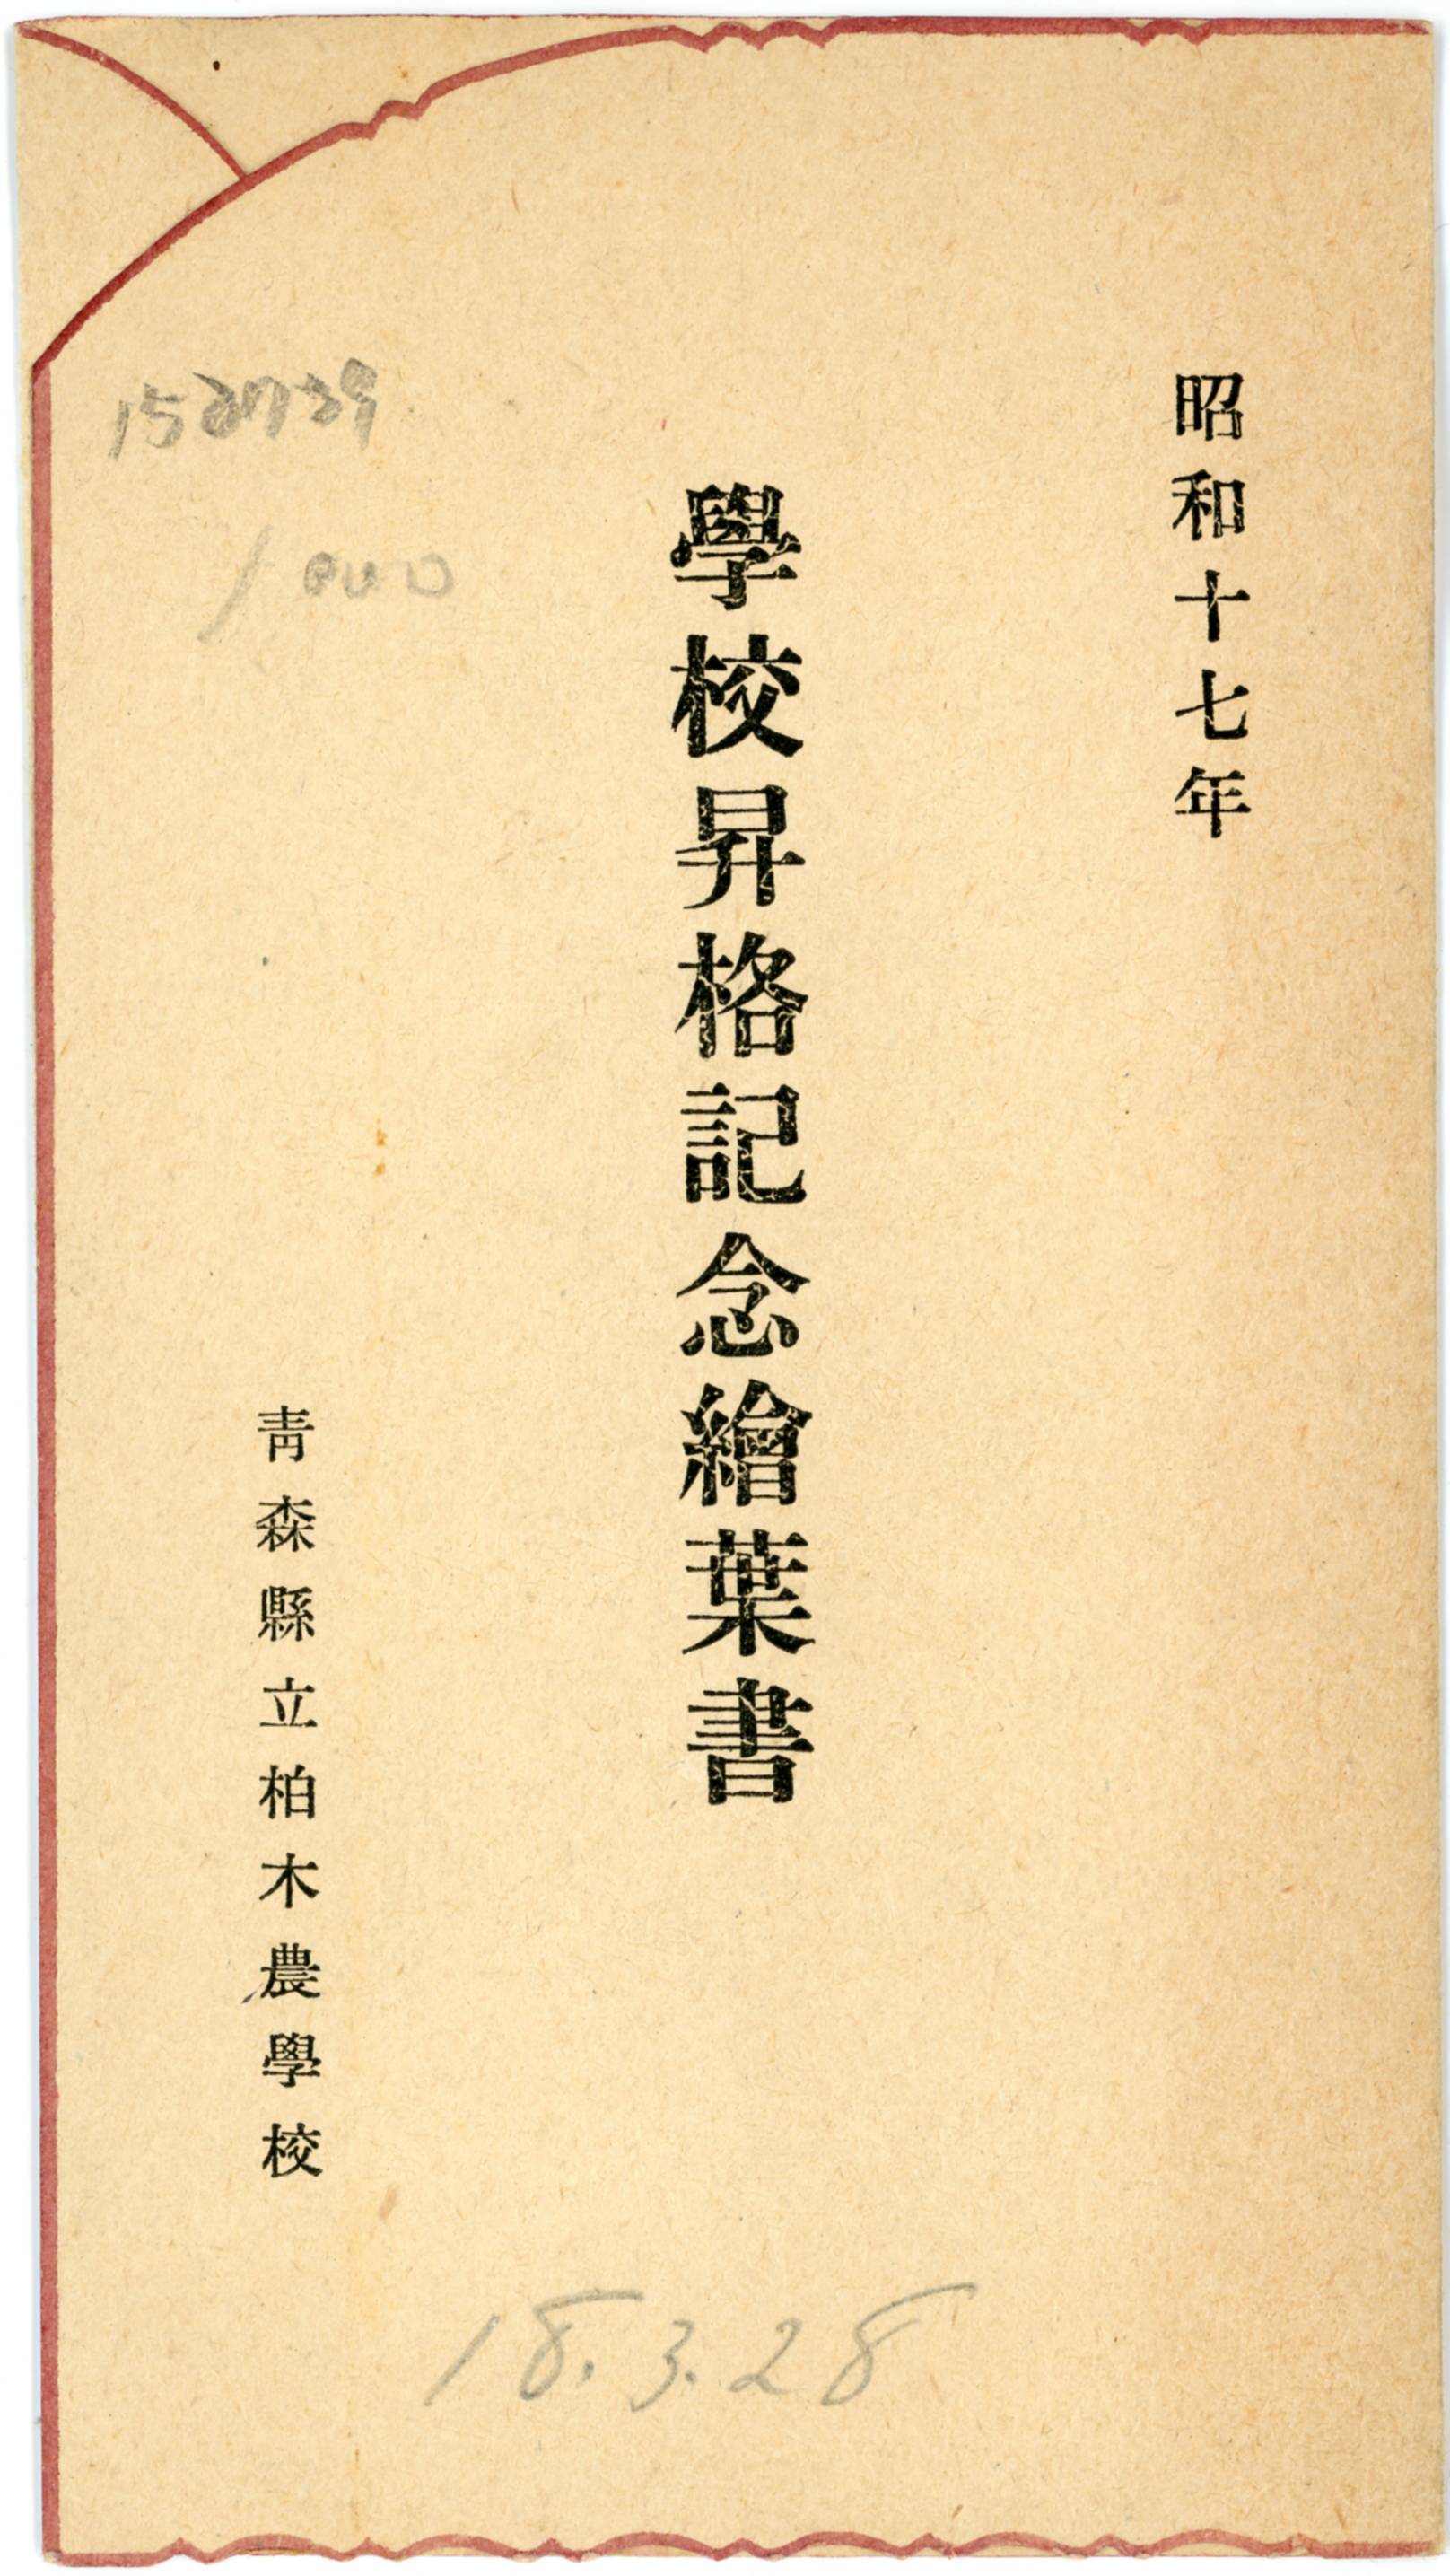 昭和十七年
學校昇格記念繪葉書
靑森縣立柏木農學校
18.3.28